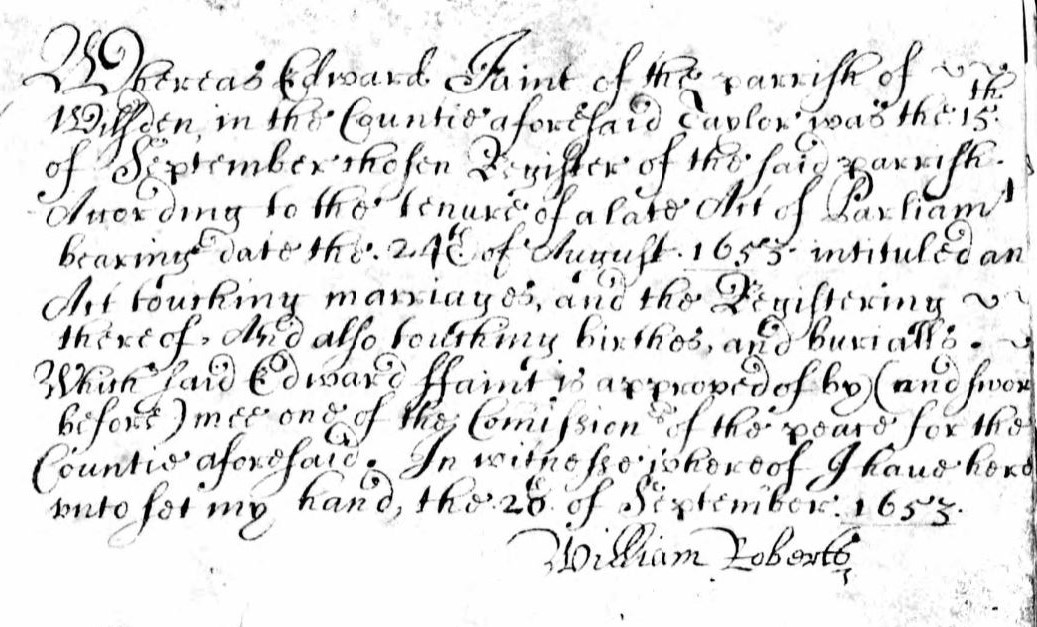 Whereas Edward Faint of the parrish of
Willsden, in the Countie aforesaid Taylor was the 15th.
of September chosen Register of the said parrish.
According to the tenure of a late Act of Parliamt
bearing date the. 24th of August. 1653. intituled an
Act touching marriages, and the Registering
thereof, And also touching birthes, and burialls.
Which said Edward ffaint is approved of by (and swor
before) mee one of the Comissionrs of the peace for the
Countie aforesaid. In witnesse whereof I have here
vnto set my hand, the 28 of September. 1653.
William Roberts